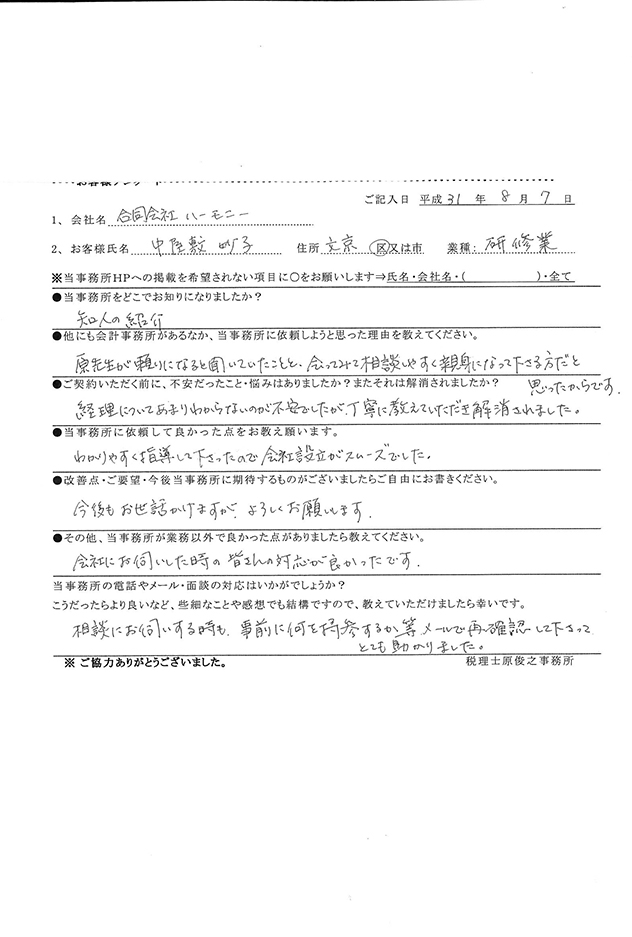 お客様アンケート
ご記入日 平成 31 年 8 月 7 日
1、会社名 合同会社 ハーモニー
2、お客様氏名 中屋敷 妙子 住所 文京 区又は市 業種: 研修業
※当事務所HPへの掲載を希望されない項目に○をお願いします⇒氏名・会社名・( )・全て
●当事務所をどこでお知りになりましたか?
知人の紹介
●他にも会計事務所があるなか、当事務所に依頼しようと思った理由を教えてください。
原先生が頼りになると聞いていたことと、会ってみて相談しやすく親身になって下さる方だと
思ったからです。
●ご契約いただく前に、不安だったこと・悩みはありましたか?またそれは解消されましたか?
経理についてあまりわからないのが不安でしたが、丁寧に教えていただき解消されました。
●当事務所に依頼して良かった点をお教え願います。
わかりやすく指導して下さったので会社設立がスムーズでした。
●改善点・ご要望・今後当事務所に期待するものがございましたらご自由にお書きください。
今後もお世話かけますが、よろしくお願いします。
●その他、当事務所が業務以外で良かった点がありましたら教えてください。
会社にお伺いした時の皆さんの対応が良かったです。
当事務所の電話やメール・面談の対応はいかがでしょうか?
こうだったらより良いなど、些細なことや感想でも結構ですので、教えていただけましたら幸いです。
相談にお伺いする時も、事前に何を持参するか等メールで再確認して下さって
とても助かりました。
※ ご協力ありがとうございました。 税理士原俊之事務所